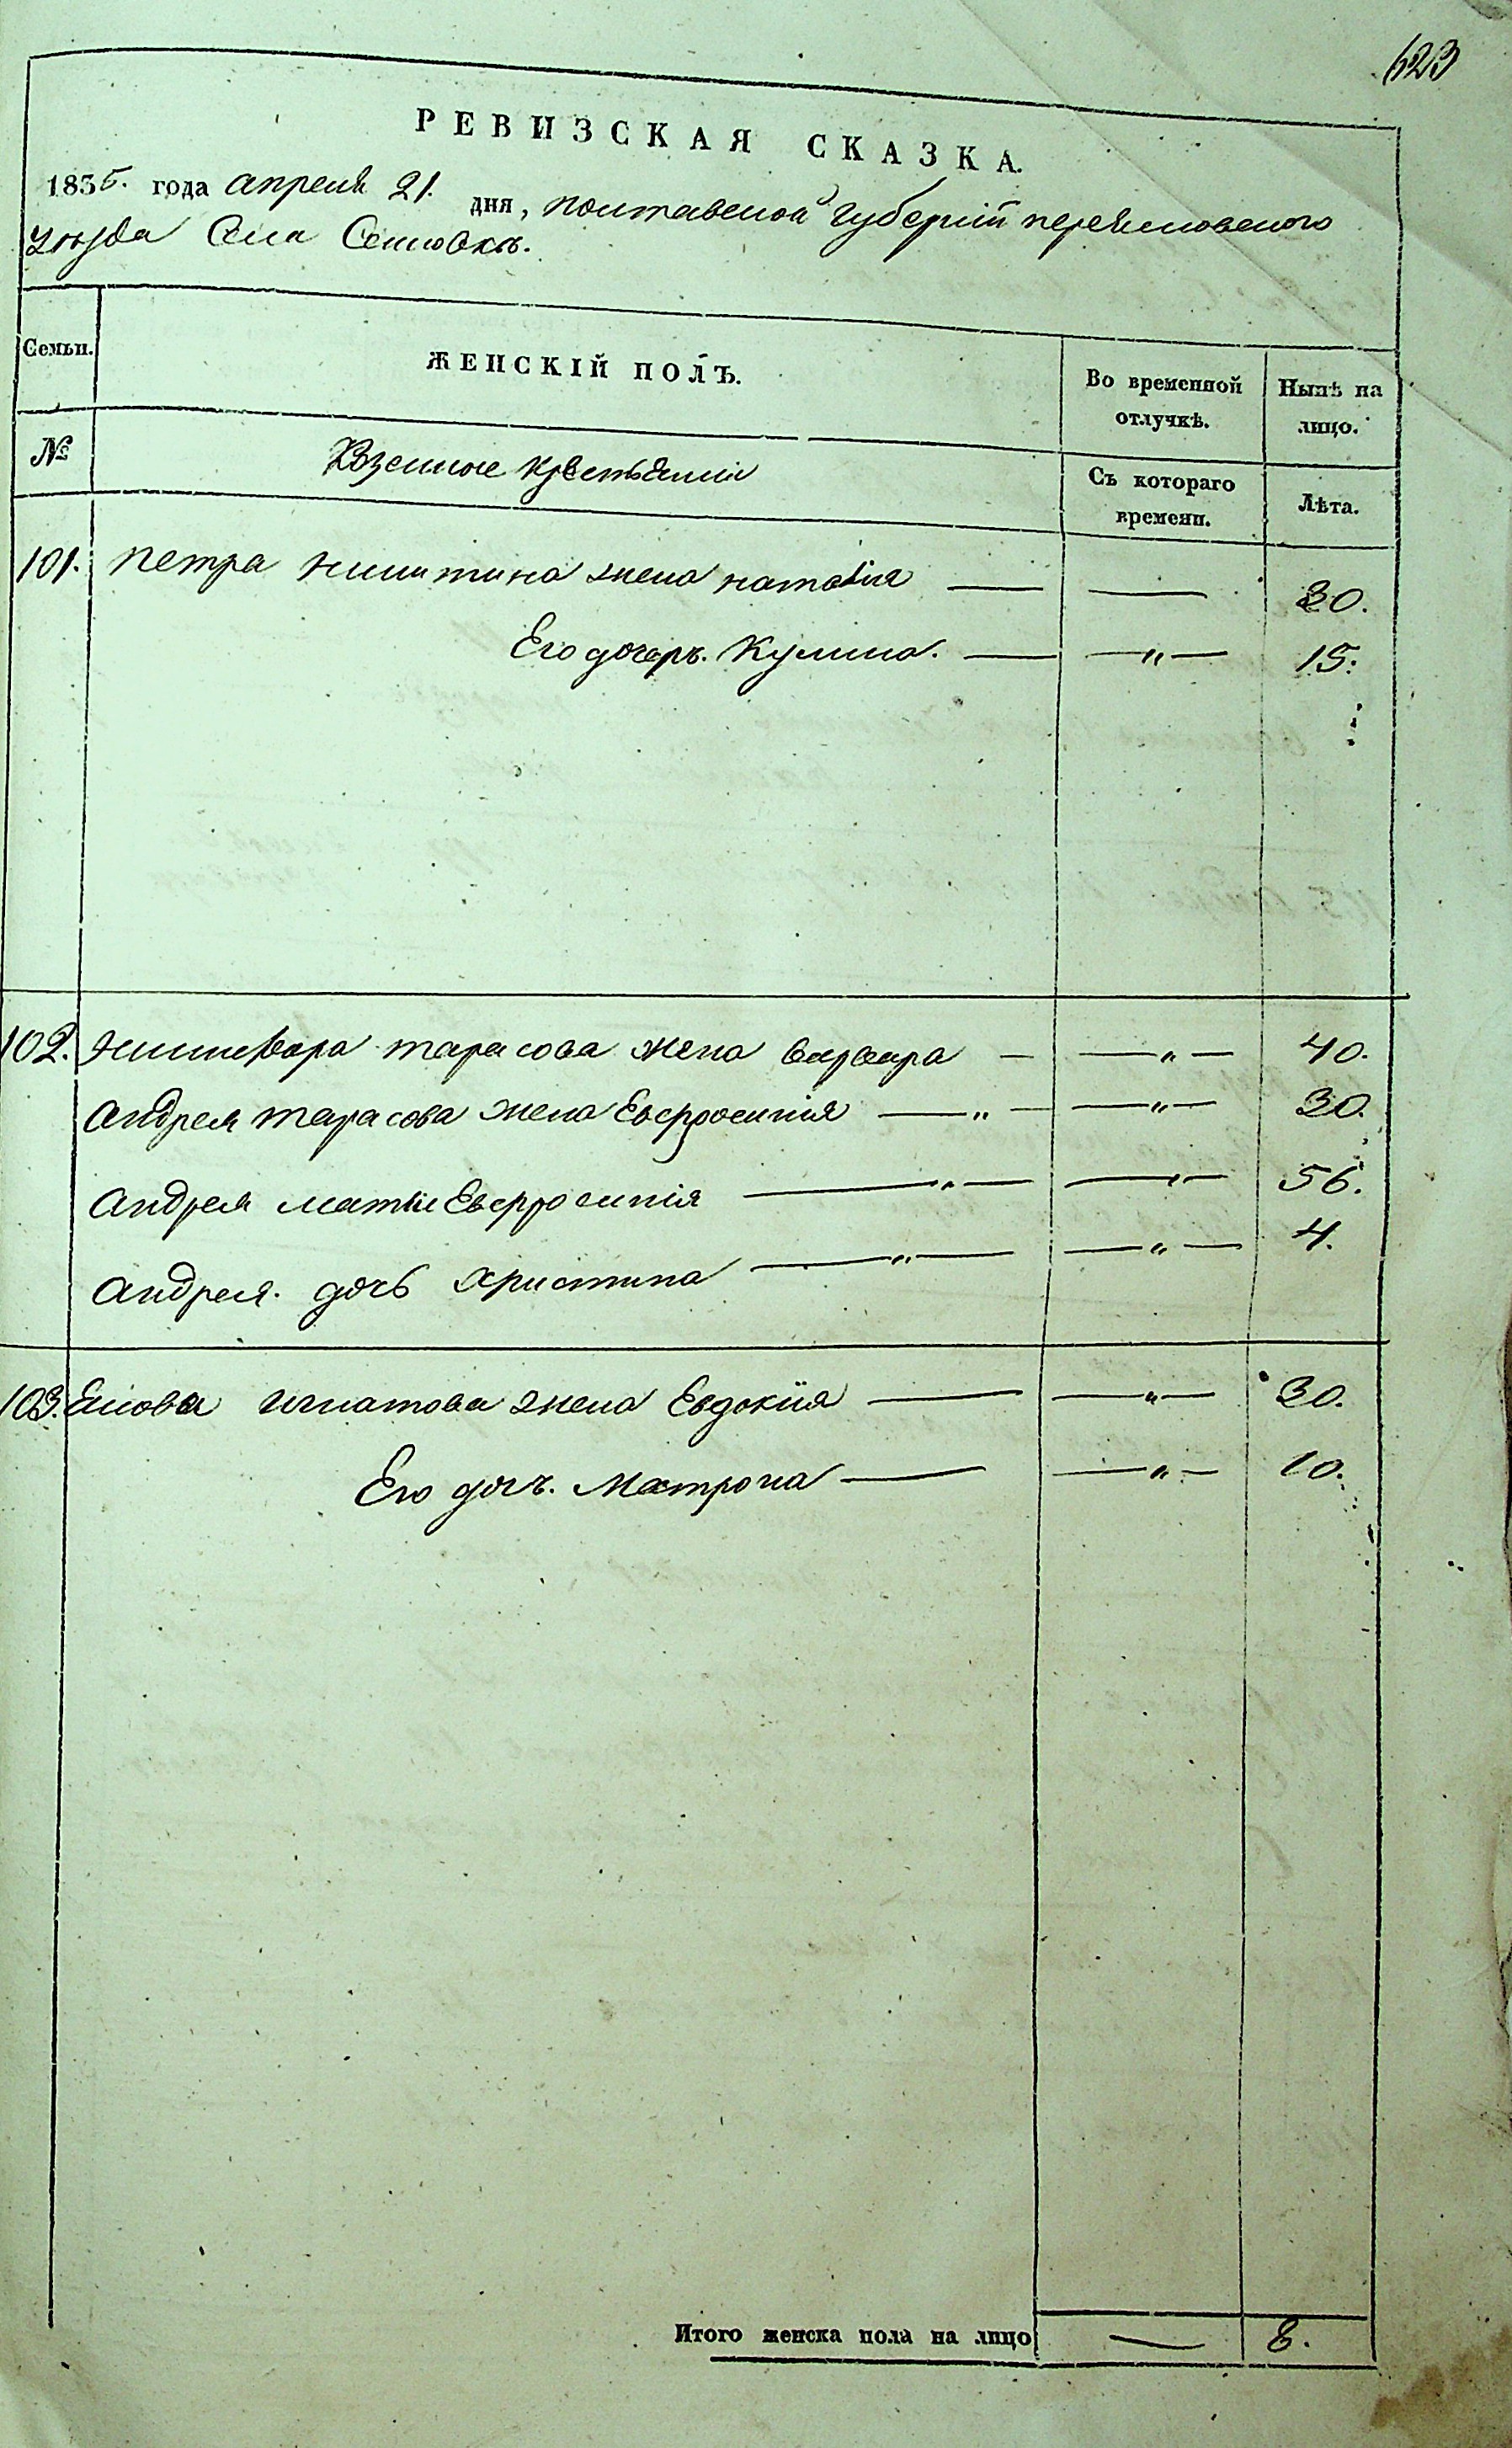 623
РЕВИЗСКАЯ СКАЗКА.
1835. года апреля 21. дня, полтавской губернїи переяславского
уѣзда Села Сошовкѣ.
Семьи. ЖЕНСКІЙ ПОЛЪ. Во временной отлучкѣ. Нынѣ на лицо.
№ Козенные крестьянии Съ котораго времени. Лѣта.
101. петра никитина жена наталия — — 30.
Его дочеръ. Кулина. — —„— 15.
102. никифора тарасова жена варвара — —„— 40.
андрея тарасова жена Евфросинїя —„— —„— 30.
андрея мати Евфросинїя —„— —„— 56.
андрея. дочь христина —„— —„— 4.
103. Якова игнатова жена Евдокїя — —„— 30.
Его дочъ. Матрона — —„— 10.
Итого женска пола на лицо — 8.